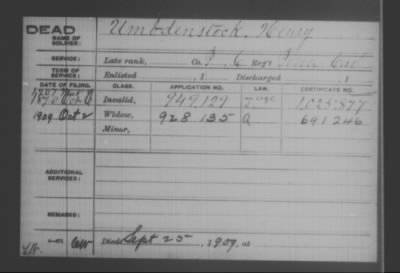 DEAD
NAME OF SOLDIER: Umbdenstock, Henry
SERVICE: Late rank, Co. Reg't Cav
TERM OF SERVICE: Enlisted , 1 Discharged , 1
DATE OF FILING. CLASS. APPLICATION NO. LAW. CERTIFICATE NO.
Oct Invalid, 949,129 1,025,877
1909 Oct 2 Widow, 928 135 a 691 246
Minor,
ADDITIONAL SERVICES:
REMARKS:
Died Sept 25, 1909, at